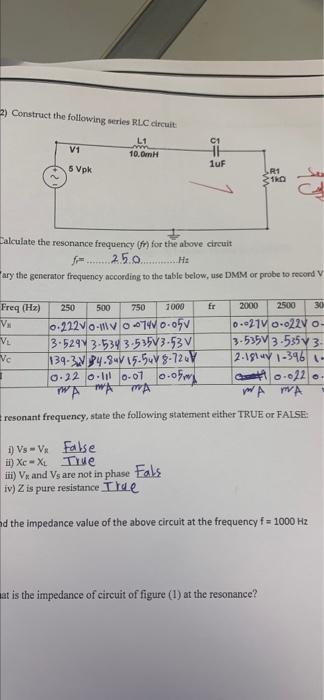 2) Construct the following series RLC circuit:
V1
5 Vpk
L1
10.0mH
C1
1uF
R1
1kΩ
Calculate the resonance frequency (fr) for the above circuit
fr= ........250..............Hz
ary the generator frequency according to the table below, use DMM or probe to record V
Freq (Hz) 250 500 750 1000 fr 2000 2500 30
VR 0.222V 0.111V 0.074V 0.05V 0.027V 0.022V 0-
VL 3.529V 3.534 3.535V 3.53V 3.535V 3.535V 3-
Vc 15.54V 8.72uV 1-396
I 0.22 0.111 0.07 0.05 0.022 0.
mA mA mA mA mA
resonant frequency, state the following statement either TRUE or FALSE:
i) Vs = VR False
ii) Xc = XL True
iii) VR and Vs are not in phase Fals
iv) Z is pure resistance True
nd the impedance value of the above circuit at the frequency f = 1000 Hz
at is the impedance of circuit of figure (1) at the resonance?